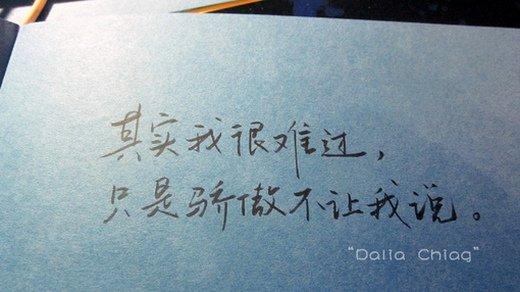 其实我很难过，
只是骄傲不让我说。
"Dalia Chiag"